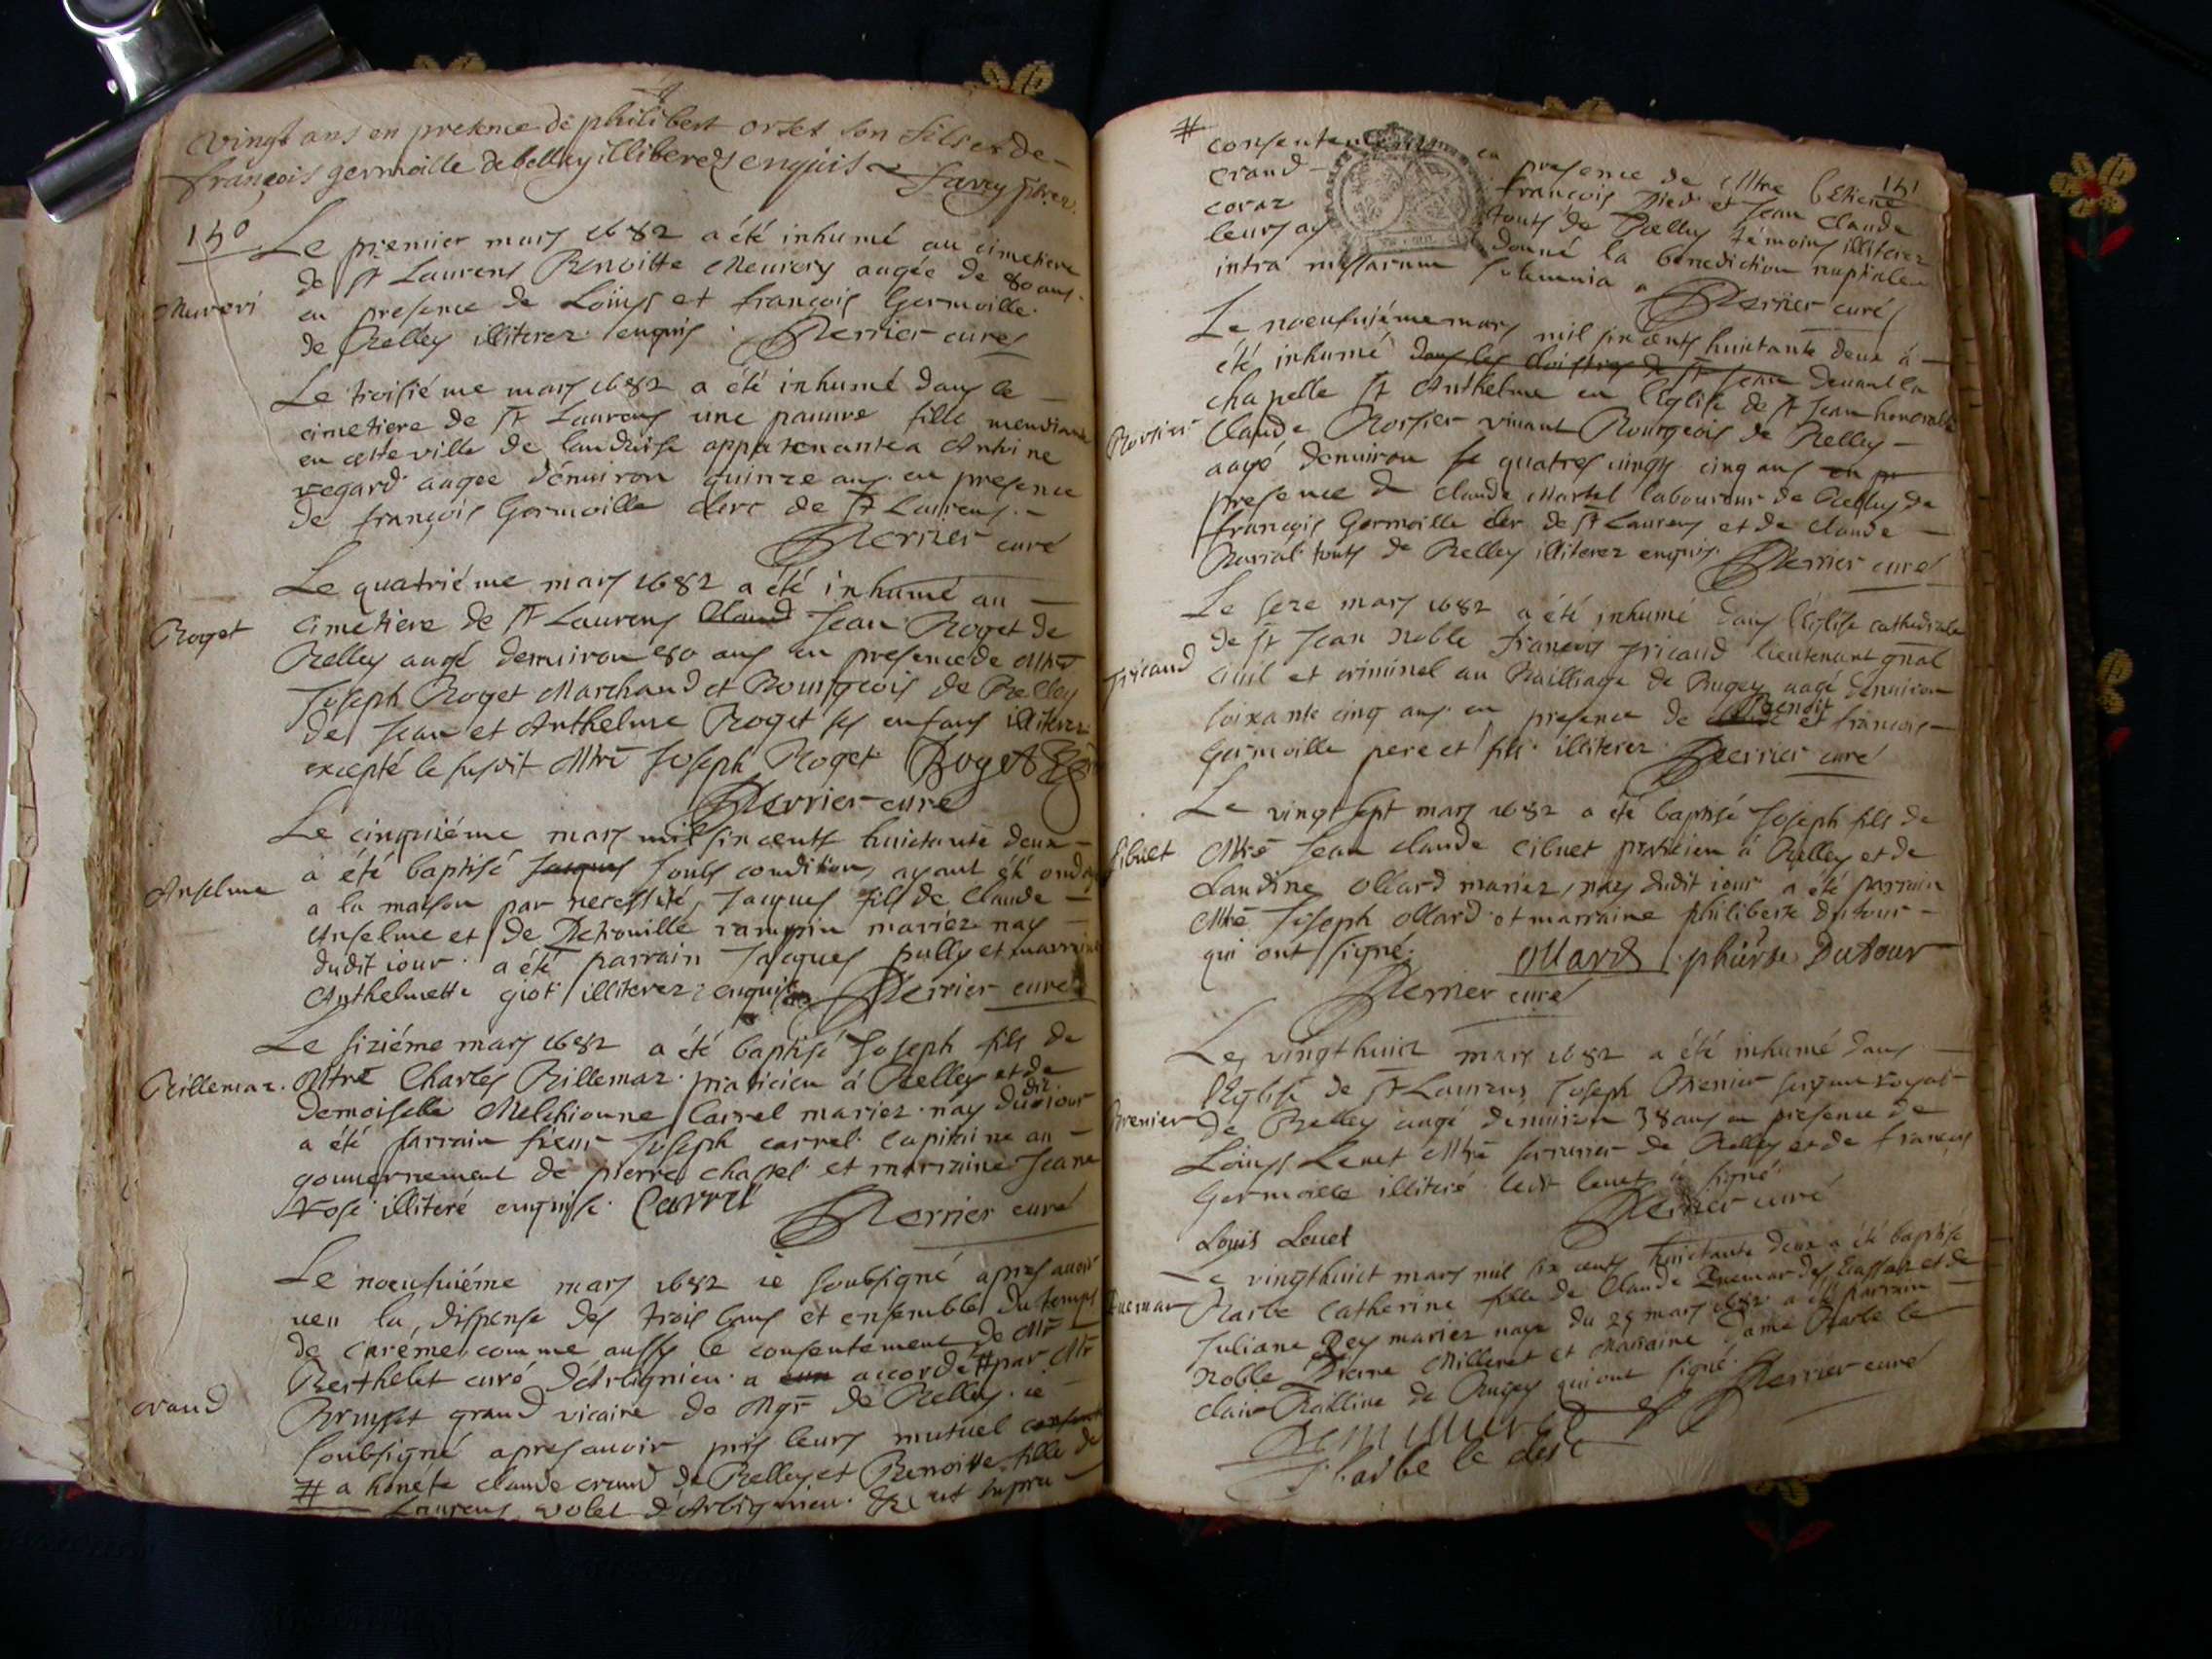 vingt ans en presence de philibert orset son fils et de
françois germoille de belley illiterez enquis
140
Le premier mars 1682 a été inhumé au cimetiere
de St Laurens Benoitte Meurery aagée de 80 ans
Mureri
en presence de Loüys et françois Germoille
de Belley illiterez enquis Perrier curé
Le troisiéme mars 1682 a été inhumé dans le
cimetiere de St Laurens une pauvre fille mendiante
en cette ville de appartenante a Antoine
regard aagée d'énuiron quinze ans en presence
de françois Germoille clerc de St Laurens
Perrier curé
Le quatriéme mars 1682 a été inhumé au
Roget
cimetiere de St Laurens Claud Jean Roget de
Belley aagé denuiron 80 ans en presence de Mtre
Joseph Roget Marchand et Bourgeois de Belley
de Jean et Anthelme Roget ses enfans illiterez
excepté le susdit Mtre Joseph Roget Roget
Perrier curé
Le cinquiéme mars mil sixcents huictante deux
a été baptisé Jacques soubs condition, ayant été ondoyé
Anselme
a la maison par necessité, Jacques fils de Claude
Anselme et de Petrouille rampin mariez nay
dudit iour a été parrain Jacques pully et marraine
Anthelmette giot illiterez enquis Perrier curé
Le siziéme mars 1682 a été baptisé Joseph fils de
Billemaz
Mtre Charles Billemaz praticien à Belley et de
demoiselle Melchionne Carrel mariez nay dudit iour
a été parrain sieur Joseph carrel Capitaine au
gouvernement de pierre chastel et marraine Jeane
rose illiteré enquise Carrel Perrier curé
Le noeufuiéme mars 1682 ie soubsigné apres auoir
ueu la dispense des trois bans et ensemble du temps
de carême comme aussy le consentement de Mr
Berthelet curé d'Arbignieu a accordé # par Mr
Crand
Bruyset grand vicaire de Mgr de Belley ie
soubsigné apres auoir pris leurs mutuel consent
# a honête claude crand de Belley et Benoitte fille de
Laurens volet d'Arbignieu ut supra
# consentement en presence de Mtre Etiene 141
Crand françois Pied et Jean Claude
coraz touts de Belley témoins illiterez
leurs ay donné la benediction nuptiale
intra missarum solemnia Perrier curé
Le noeufuiéme mars mil sixcents huictante deux à
été inhumé dans les cloistres de St Jean deuant la
chapelle St Anthelme en l'Eglise de St Jean honorable
Claude Rossier viuant Bourgeois de Belley
aagé denuiron quatres vingts cinq ans en pr
presence de Claude Martel laboureur de Belley de
françois Germoille cler de St Laurens et de Claude
touts de Belley illiterez enquis Perrier curé
Le seze mars 1682 a été inhumé dans l'Eglise cathedrale
Tricaud
de St Jean noble françois Tricaud lieutenant gnal
ciuil et criminel au Bailliage de Bugey aagé denuiron
soixante cinq ans en presence de Benoit et françois
Germoille pere et fils illiterez Perrier curé
Le vingt sept mars 1682 a été baptisé Joseph fils de
Sibuet
Mtre Jean Claude Cibuet praticien à Belley et de
Claudine Ollard mariez, nay dudit iour a été parrain
Mtre Joseph Ollard et marraine philiberte dutour
qui ont signé. Ollard Dutour
Perrier curé
Le vingthuict mars 1682 a été inhumé dans
l'Eglise de St Laurens Joseph Brenier sergent royal
Brenier
de Belley aagé dénuiron 38 ans en presence de
Loüys Leuet Mtre serrurier de Belley et de françois
Germoille illiteré ledt leuet à signé
Louis Leuet Perrier curé
Le vingthuict mars mil six cents huictante deux a été baptisé
Barbe Catherine fille de Claude et de
Juliane Rey mariez naye du 25 mars 1682 a été parrain
Noble Pierre Milleret et Marraine Dame Barbe le
clair Baillive de Bugey qui ont signé Perrier curé
Barbe le clerc